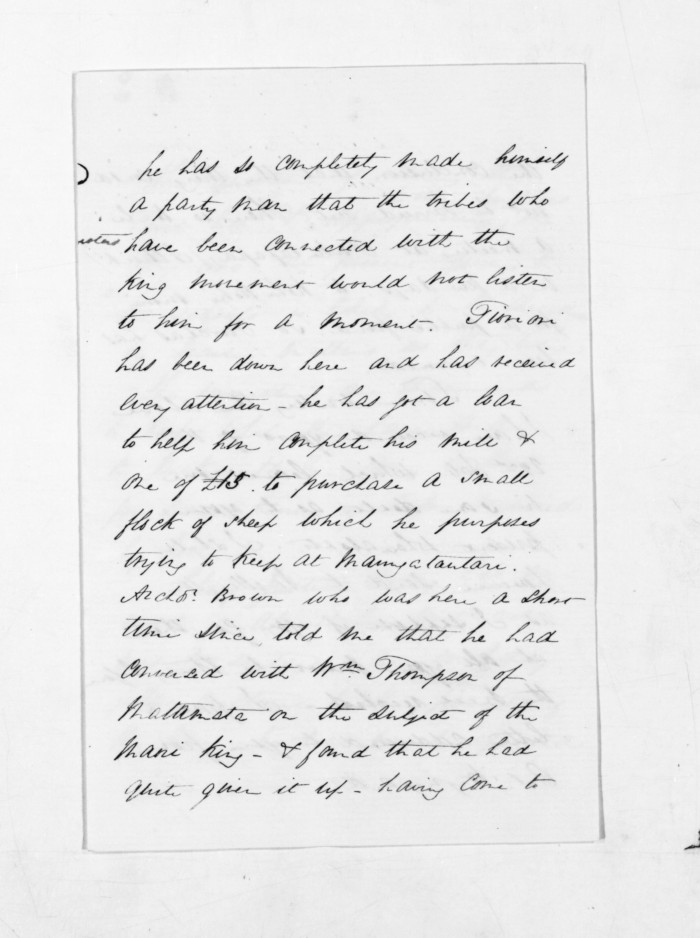 he has so completely made himself
a party man that the tribes who
have been connected with the
King movement would not listen
to him for a moment. Tioriori
has been down here and has received
every attention - he has got a loan
to help him complete his mill &
one of £15. to purchase a small
flock of sheep which he purposes
trying to keep at Maungatautari.
Archdn. Brown who was here a short
time since told me that he had
conversed with Wm Thompson of
Matamata on the subject of the
Maori King - & found that he had
quite given it up - having come to